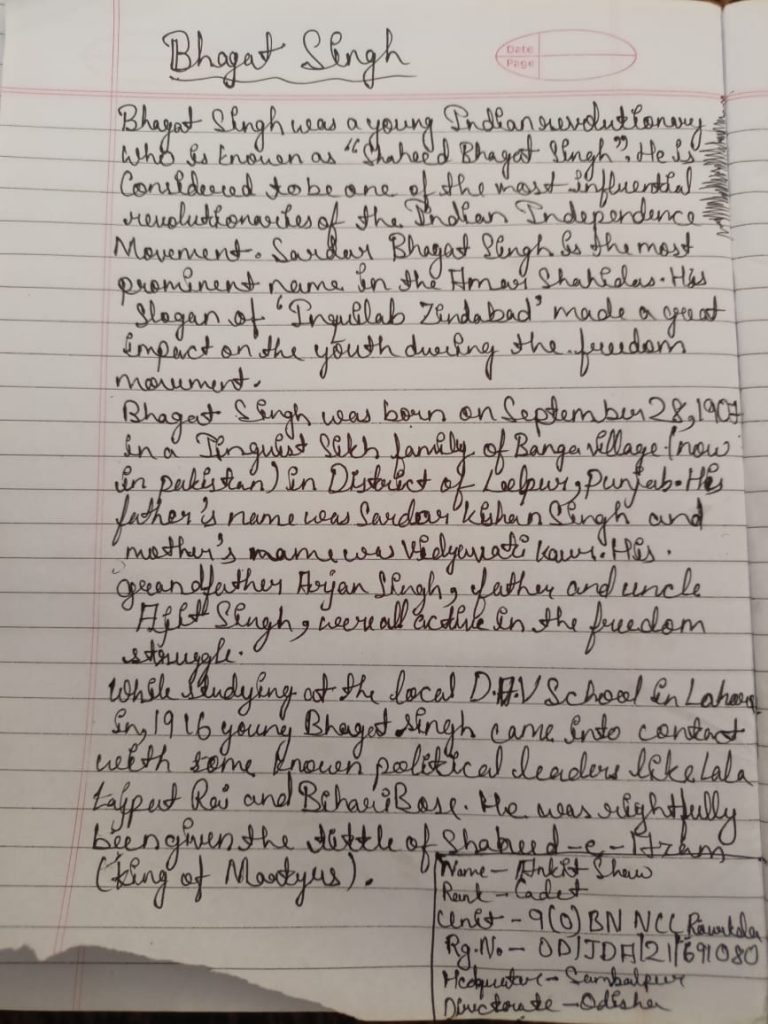 Bhagat Singh
Date
Page
Bhagat Singh was a young Indian revolutionary
who is known as "Shaheed Bhagat Singh". He is
Considered to be one of the most influential
revolutionaries of the Indian Independence
Movement. Sardar Bhagat Singh is the most
prominent name in the Amar Shahidas. His
Slogan of 'Inquilab Zindabad' made a great
impact on the youth during the freedom
movument.
Bhagat Singh was born on September 28, 1907
in a Jinguist Sikh family of Banga village (now
in pakistan) in District of Leelpur, Punjab. His
father's name was Sardar Kishan Singh and
mother's mame wes Vidyavati kaur. His.
grandfather Arjan Singh, father and uncle
Ajit Singh, were all active in the freedom
struggle.
While studying at the local D.A.V School in Lahore
in, 1916 young Bhagat singh came into contact
with some known political leaders like Lala
Lajput Rai and Bihari Bose. He was rightfully
been given the tittle of Shaheed-e-Azam
(king of Martyrs).
Name - Ankit Shaw
Rank - Cadet
Unit - 9(O) BN NCC Rourkela
Rg.No. - OD/JDA/21/691080
Hedquater - Sambalpur
Directorate - Odisha